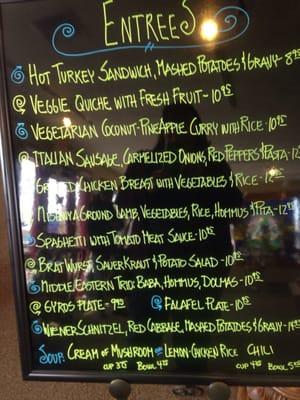 Entrees
Hot Turkey Sandwich, Mashed Potatoes & Gravy - 8
Veggie Quiche with Fresh Fruit - 10.95
Vegetarian Coconut-Pineapple Curry with Rice - 10
Italian Sausage, Carmelized Onions, Red Peppers & Pasta - 12
Chicken Breast with Vegetables & Rice - 12
Ground Lamb, Vegetables, Rice, Hommus & Pita - 12
Spaghetti with Tomato Meat Sauce - 10.95
Bratwurst, Sauer Kraut & Potato Salad - 10.95
Middle Eastern Trio: Baba, Hommus, Dolmas - 10.95
Gyros Plate - 9.95 Falafel Plate - 10.95
Wiener Schnitzel, Red Cabbage, Mashed Potatoes & Gravy - 14
Soup: Cream of Mushroom Lemon-Chicken Rice Chili
Cup Bowl Cup Bowl